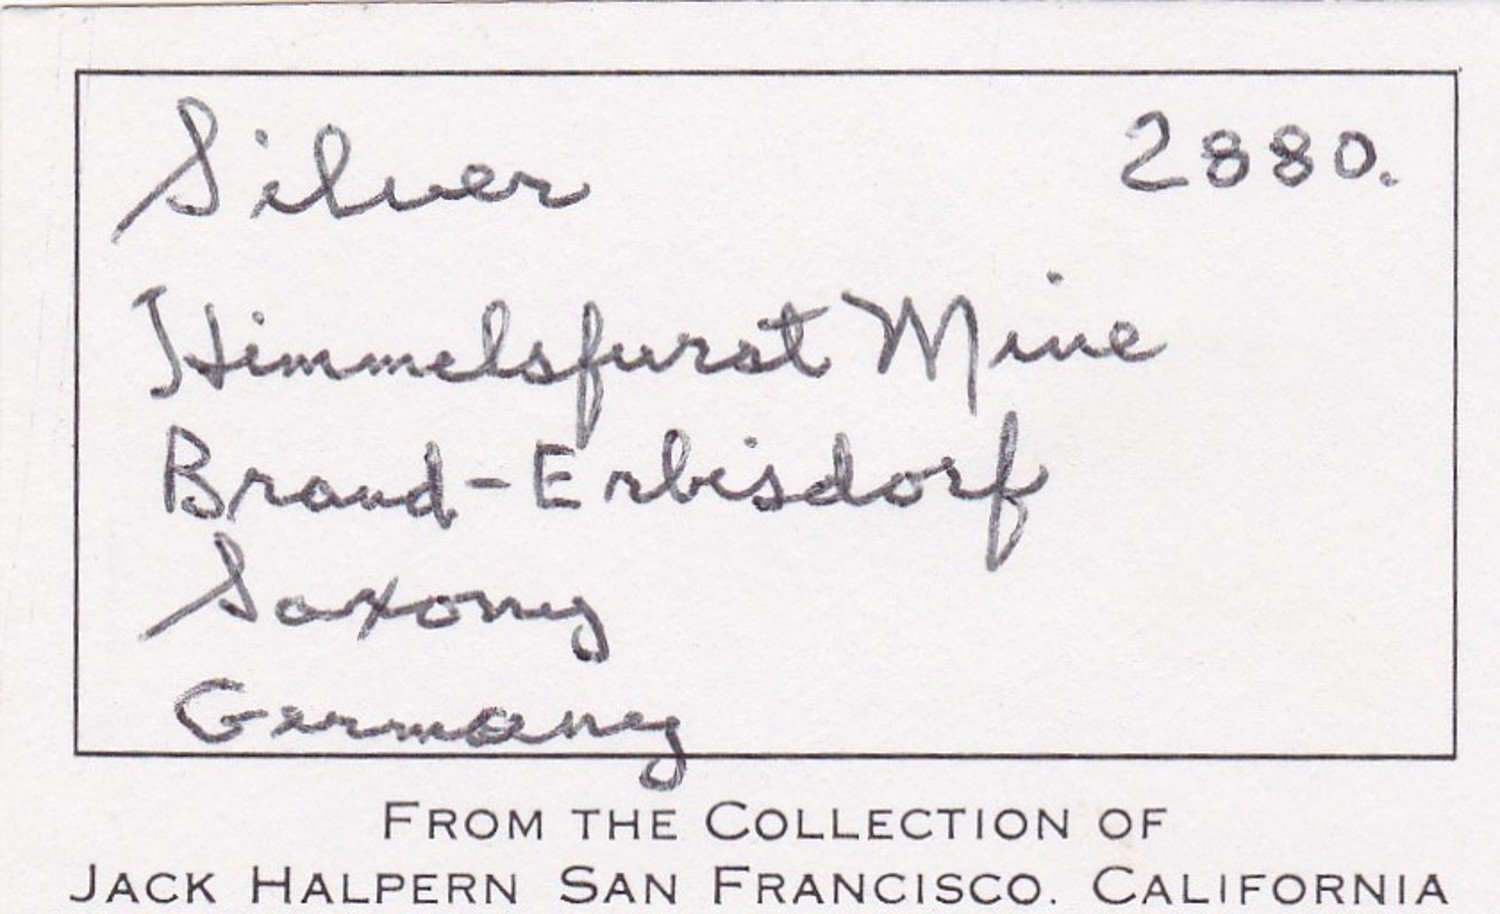 Silver 2880.
Himmelsfurst Mine
Brand-Erbisdorf
Saxony
Germany
FROM THE COLLECTION OF
JACK HALPERN SAN FRANCISCO. CALIFORNIA